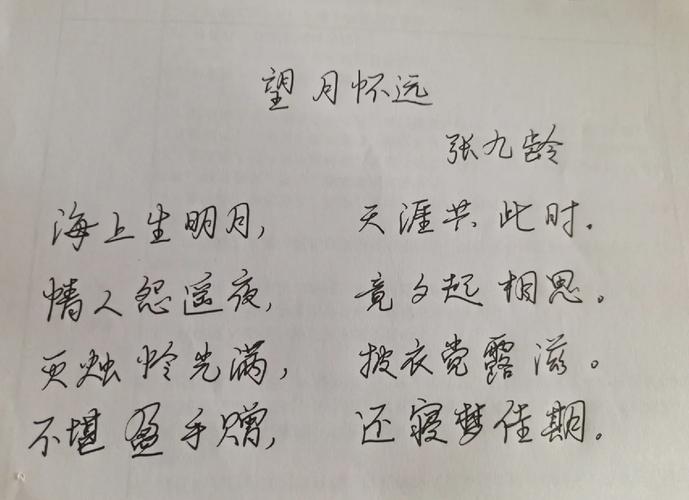 望月怀远
张九龄
海上生明月, 天涯共此时.
情人怨遥夜, 竟夕起相思。
灭烛怜光满, 披衣觉露滋。
不堪盈手赠, 还寝梦佳期.